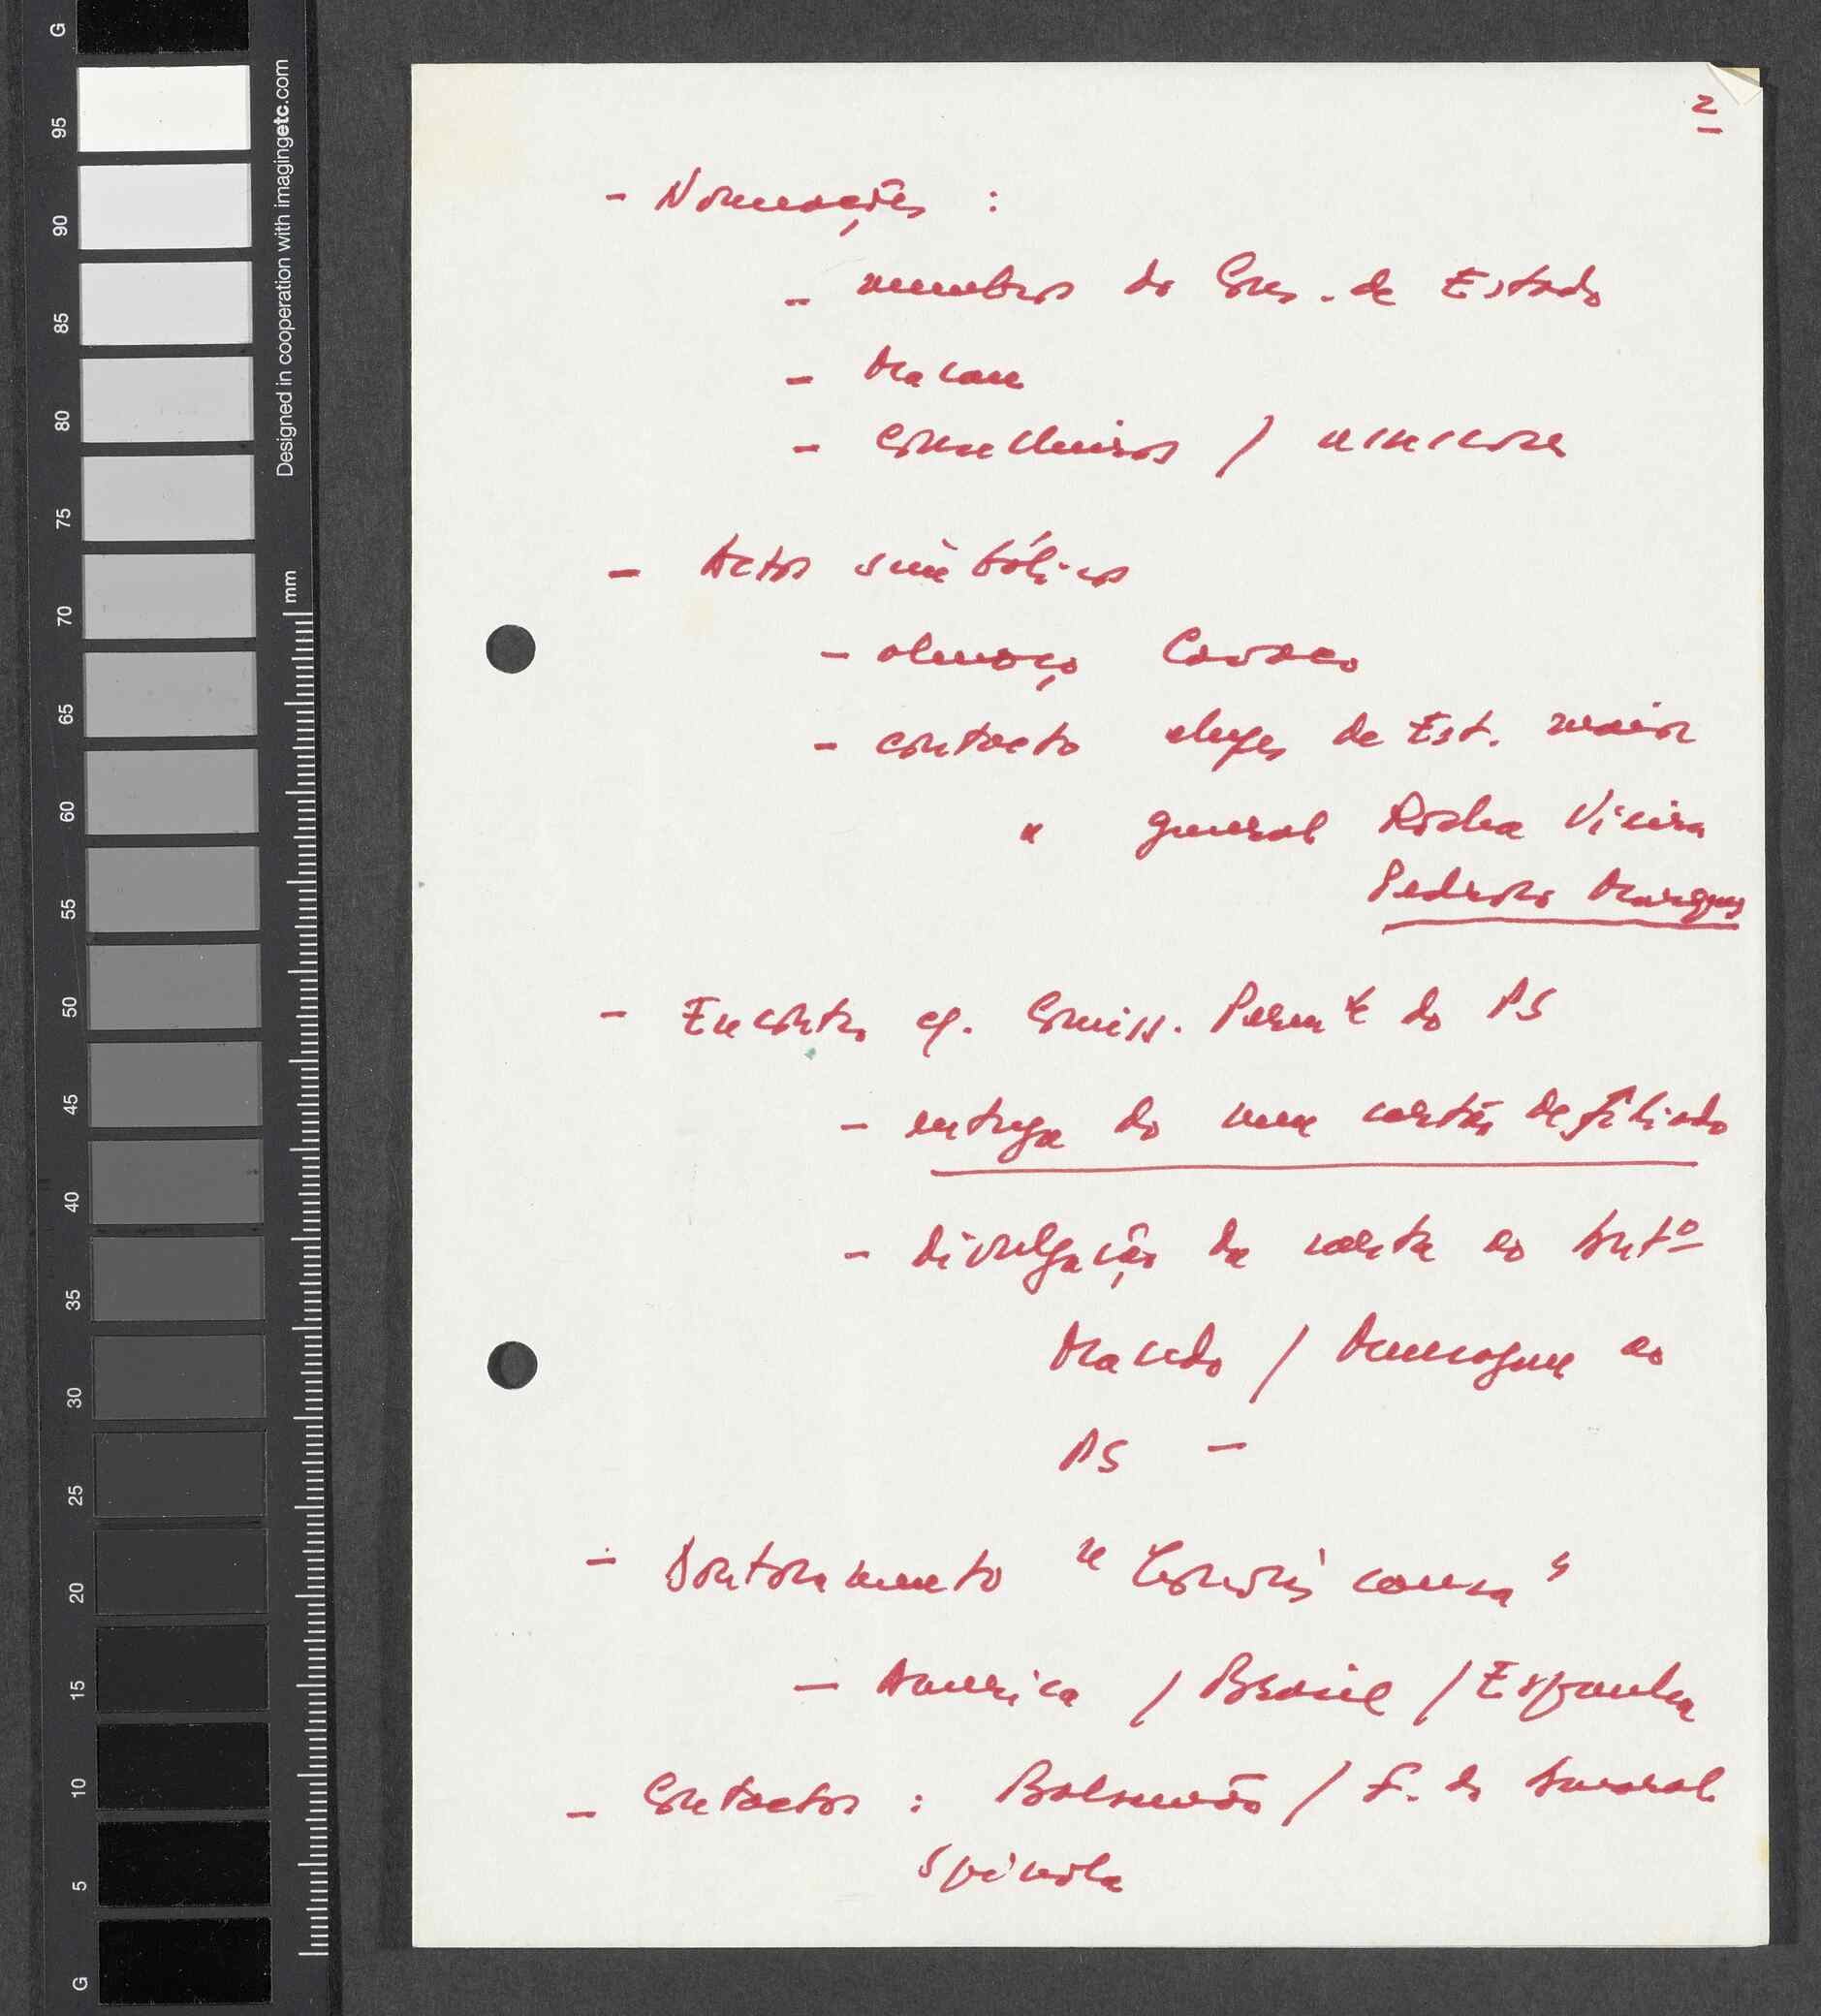 2
- Nomeações :
- membros do Cons. de Estado
- Macau
- Conselheiros / assessores
- Actos simbólicos
- almoço Cavaco
- contacto chefes de Est. maior
" general Rocha Vieira
Pedroso Marques
- Encontro c/. Comiss. Permte do PS
- entrega do meu cartão de filiado
- divulgação da carta ao Antº
Macedo / Mensagem ao
PS -
- Doutoramento "honoris causa"
- America / Brasil / Espanha
- Contactos : Balsemão / F. do Amaral
Spinola
G
95
90
85
80
75
70
65
60
55
50
45
40
35
30
25
20
15
10
5
G
Designed in cooperation with imagingetc.com
mm